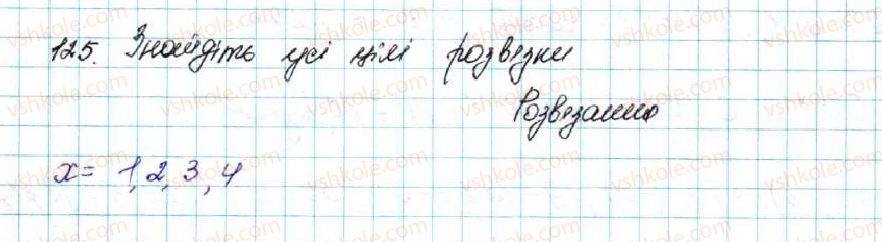 125. Знайдіть усі цілі розвязки
Розвязання
x = 1, 2, 3, 4